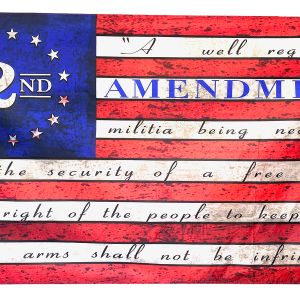 "A well reg
2ND AMENDME
militia being ne
the security of a free
right of the people to keep
arms shall not be infrin